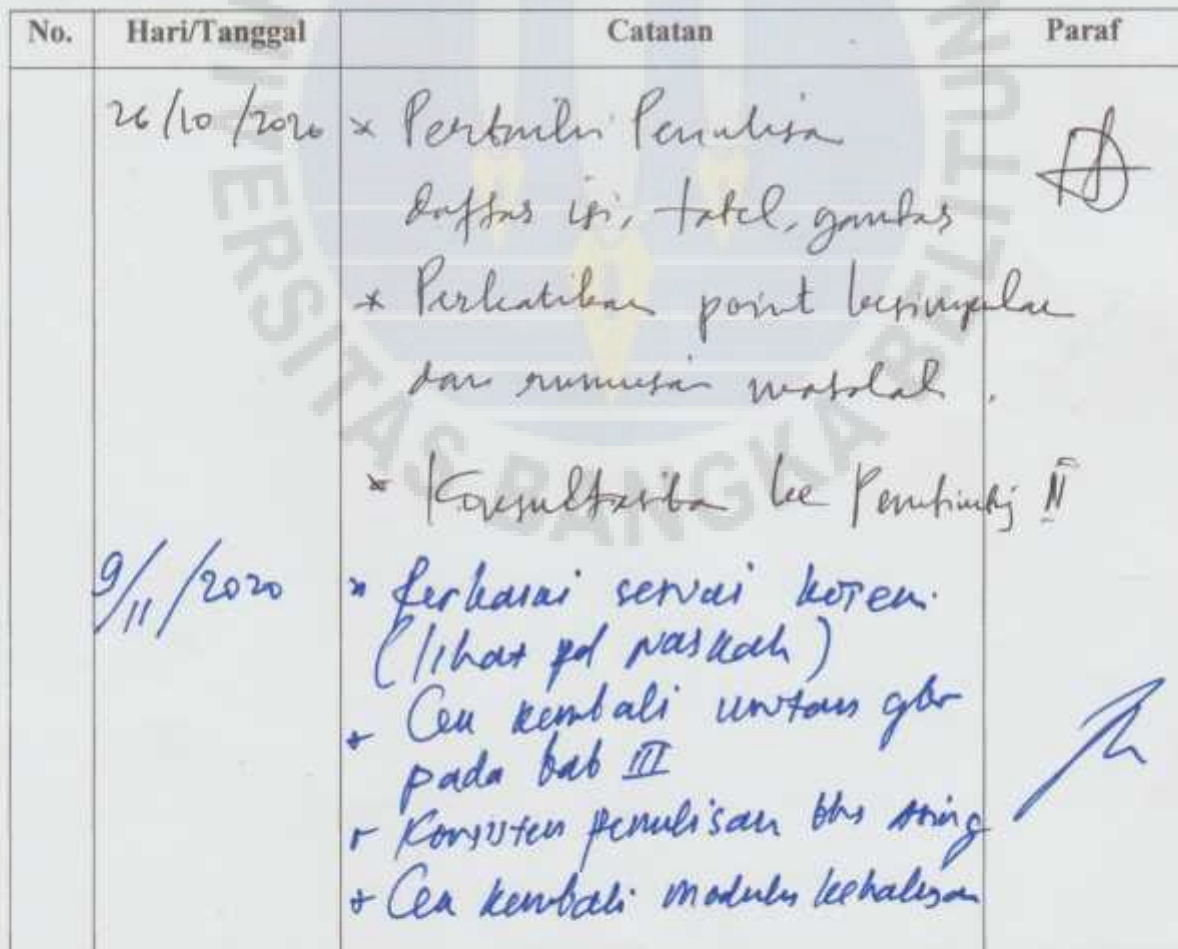 No. Hari/Tanggal Catatan Paraf
26/10/2020 * Perbaiki Penulisan
daftar isi, tabel, gambar
* Perhatikan point kesimpulan
dan rumusan masalah.
* Konsultasikan ke Pembimbing II
9/11/2020 * Perbaiki sesuai koreksi
(lihat pd naskah)
* Cek kembali urutan gbr
pada bab III
* Konsisten penulisan bhs asing
* Cek kembali modulus kehalusan
UNIVERSITAS BANGKA BELITUNG